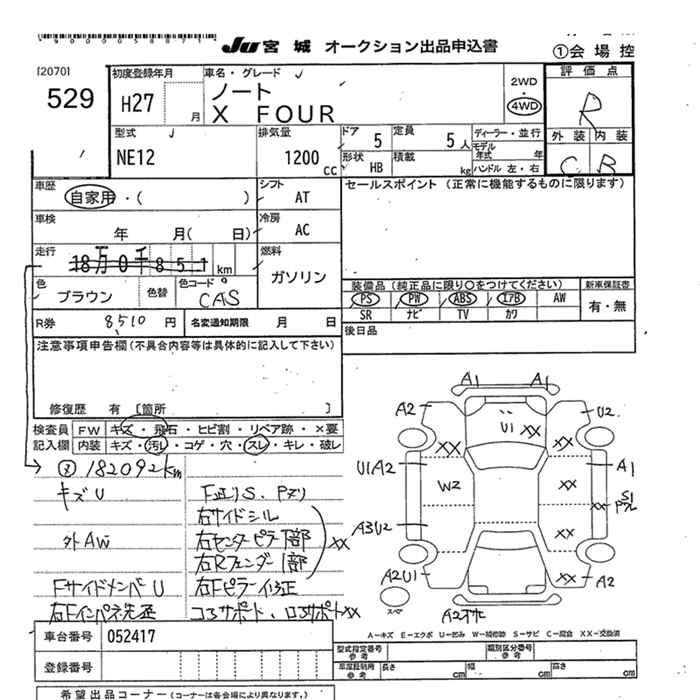 *9000058871*
JU 宮城 オークション出品申込書
①会場控
[2070]
529
初度登録年月
H27 月
車名・グレード
ノート
X FOUR
2WD
・
4WD
評価点
R
外装 内装
C B
型式
NE12
排気量
1200 cc
ドア 5
定員 5 人
形状 HB
積載 kg
ディーラー・並行
モデル年式 年
ハンドル 左・右
車歴
自家用・( )
シフト
AT
セールスポイント (正常に機能するものに限ります)
車検
年 月( 日)
冷房
AC
走行
18万0千851 km
燃料
ガソリン
色
ブラウン
色替
色コード
CAS
装備品 (純正品に限り○をつけてください)
PS PW ABS エアB AW
SR ナビ TV カワ
新車保証書
有・無
R券 8510 円
名変通知期限 月 日
後日品
注意事項申告欄(不具合内容等は具体的に記入して下さい)
修復歴 有 [箇所 ]
検査員記入欄
FW キズ・飛石・ヒビ割・リペア跡・×要
内装 キズ・汚レ・コゲ・穴・スレ・キレ・破レ
182092km
キズU
外AW
FサイドメンバU
右Fインパネ先歪
F歪リS、Pヌリ
右サイドシル
右センターピラー1部
右Rフェンダー1部
XX
右Fピラー修正
コアサポート、ロアサポートXX
A1 A1
A2 U2
U1 XX
XX
U1A2 A1
W2 XX
XX S1
A3U2 XX
A2U1 XX A2
スペア
A2オサエ
A－キズ E－エクボ U－凹ミ W－補修跡 S－サビ C－腐食 XX－交換済
車台番号 052417
登録番号
型式指定番号 参考
類別区分番号 参考
車庫証明用 参考
長さ cm
幅 cm
高さ cm
希望出品コーナー (コーナーは各会場により異なります。)